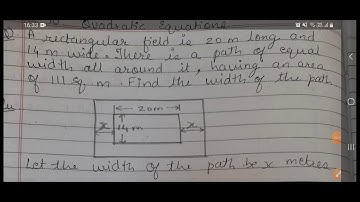 16:33
Quadratic Equations
A rectangular field is 20m long and
14 m wide. There is a path of equal
width all around it, having an area
of 111 sq. m. Find the width of the path
20m
x 14m x
Let the width of the path be x metres